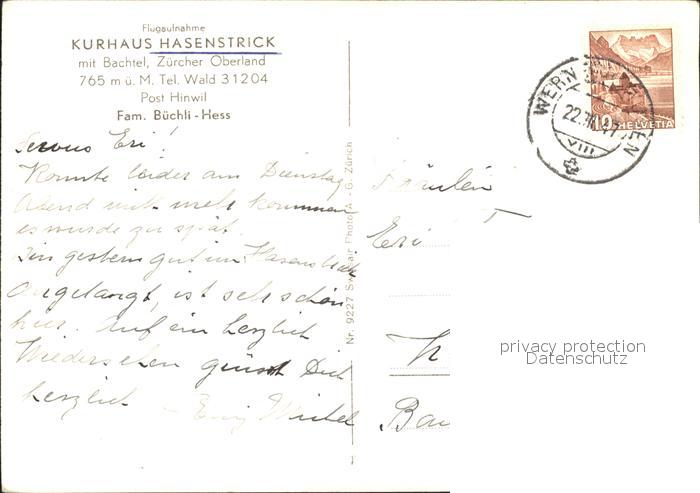 Flugaufnahme
KURHAUS HASENSTRICK
mit Bachtel, Zürcher Oberland
765 m ü. M. Tel. Wald 31204
Post Hinwil
Fam. Büchli-Hess
Servus Eri!
Konnte leider am Dienstag
Abend nicht mehr kommen
es wurde zu spät.
Bin gestern gut im Hasenstrick
angelangt, ist sehr schön
hier. Auf ein herzlich
Wiedersehen grüsst Dich
herzlich
Nr. 9227 Photo A.-G. Zürich
WERN
22.
VIII
10 HELVETIA
Fräulein
Eri
privacy protection
Datenschutz